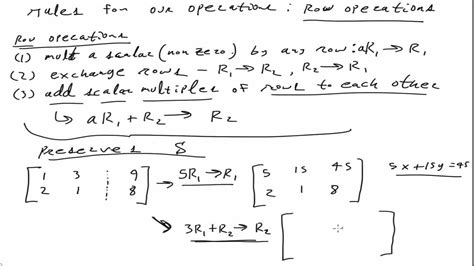 rules for our operations : Row operations
Row operations
(1) mult a scalar (non zero) by any row: aR₁ → R₁
(2) exchange rows – R₁ → R₂, R₂ → R₁
(3) add scalar multiples of rows to each other
↳ aR₁ + R₂ → R₂
preserves S
[ 1 3 ⋮ 9 ] 5R₁ → R₁ [ 5 15 45 ] 5x + 15y = 45
[ 2 1 ⋮ 8 ] [ 2 1 8 ]
3R₁ + R₂ → R₂ [ ]